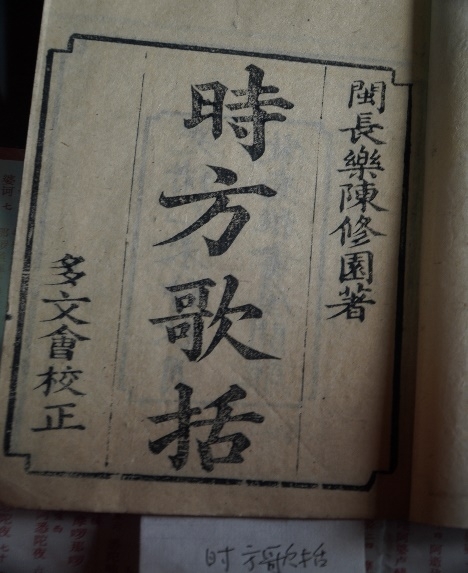 閩長樂陳修園著
時方歌括
多文會校正
时方歌括